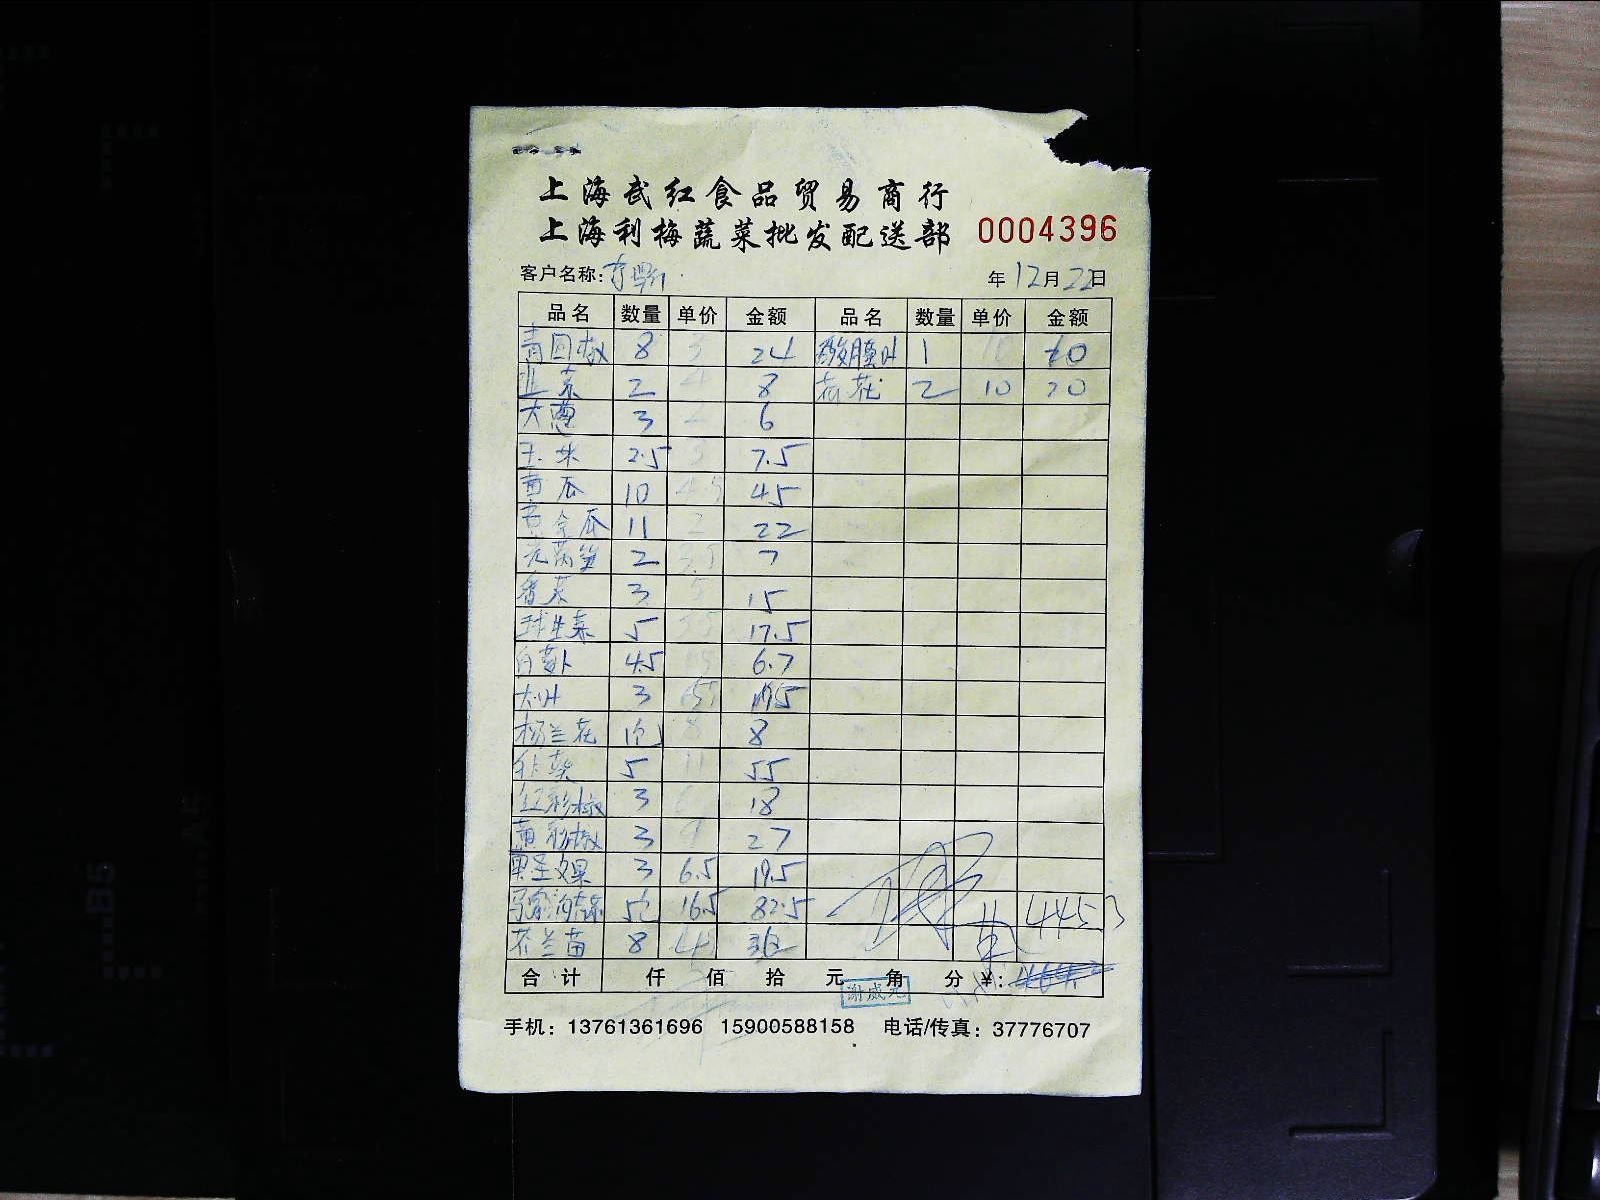 上海武红食品贸易商行
上海利梅蔬菜批发配送部 0004396
客户名称: 年12月22日
品名 数量 单价 金额 品名 数量 单价 金额
青圆椒 8 3 24 1 10 10
韭菜 2 4 8 花 2 10 20
大葱 3 2 6
玉米 2.5 3 7.5
黄瓜 10 4.5 45
黄金瓜 11 2 22
2 3.5 7
香菜 3 5 15
球生菜 5 3.5 17.5
白萝卜 4.5 1.5 6.7
大叶 3 6.5 19.5
杨兰花 1个 8 8
5 11 55
红彩椒 3 6 18
黄彩椒 3 9 27
果 3 6.5 19.5
5 16.5 82.5
芥兰苗 8 4 32 445.3
合计 仟 佰 拾 元 角 分 ¥:
谢威元
手机: 13761361696 15900588158 电话/传真: 37776707